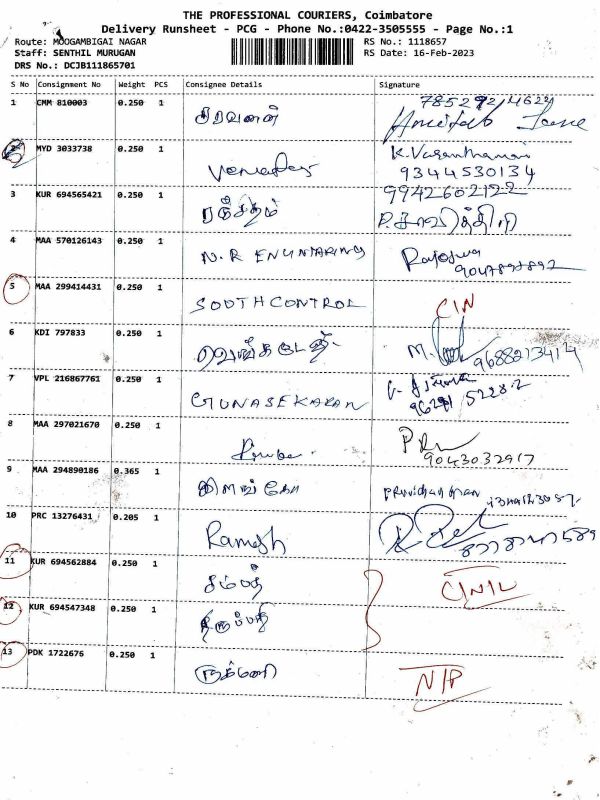 THE PROFESSIONAL COURIERS, Coimbatore
Delivery Runsheet - PCG - Phone No.:0422-3505555 - Page No.:1
Route: MOOGAMBIGAI NAGAR RS No.: 1118657
Staff: SENTHIL MURUGAN RS Date: 16-Feb-2023
DRS No.: DCJB111865701
S No Consignment No Weight PCS Consignee Details Signature
1 CMM 810003 0.250 1 சரவணன்
2 MYD 3033738 0.250 1 K.Vasanthamani
9344530134
3 KUR 694565421 0.250 1 ரஞ்சிதம் 9942602122
P.சாவித்திரி
4 MAA 570126143 0.250 1 N.R ENGINTARING
9047898892
5 MAA 299414431 0.250 1 SOOTHCONTROL C/N
6 KDI 797833 0.250 1 வெங்கடேஷ் M. 9688213414
7 VPL 216867761 0.250 1 GUNASEKARAN
8 MAA 297021670 0.250 1
9043032917
9 MAA 294890186 0.365 1 இளங்கோ
10 PRC 13276431 0.205 1 Ramesh
11 KUR 694562884 0.250 1 சம்பத்
12 KUR 694547348 0.250 1 திருப்பதி
13 PDK 1722676 0.250 1 ருக்மணி N/P